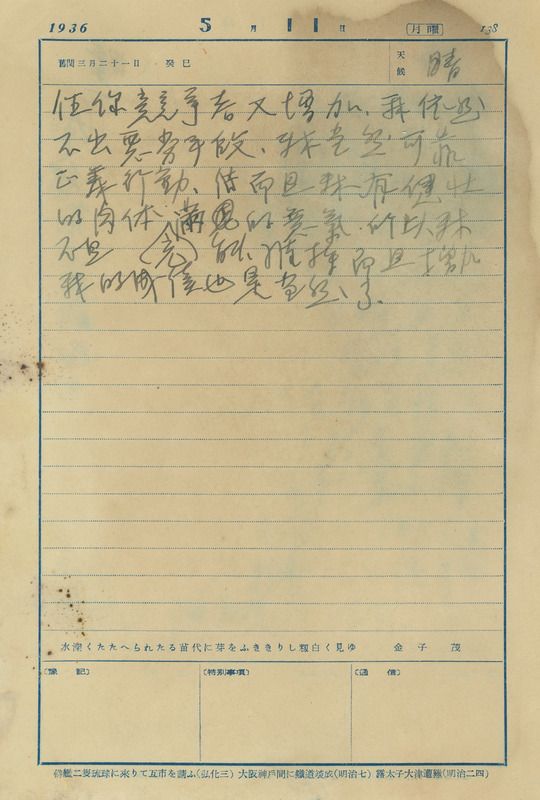 1936 5月11日 月曜 138
舊閏三月二十一日 癸巳 天候 晴
任你競爭者又增加、我依然
不出惡劣手段、我當然可靠
正義行動、備而且我有健壯
的肉体 滿的意氣、所以我
不但 能維持而且增加
我的成信也是當然、了
水深くたたへられたる苗代に芽をふききりしき粗白く見ゆ 金子茂
〔豫記〕 〔特別事項〕 〔通信〕
俄艦二隻琉球に來りて互市を請ふ(弘化三) 大阪神戸間に鐵道竣成(明治七) 露太子大津遭難(明治二四)